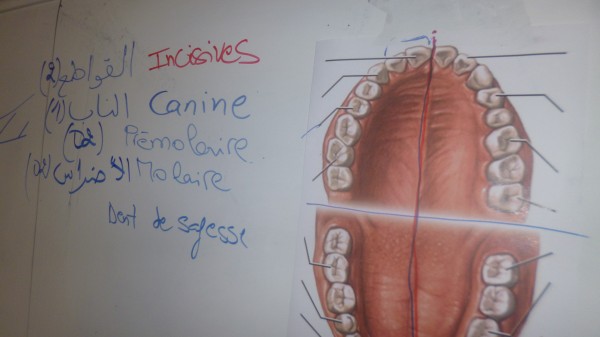 (2) القواطع Incissives
(1) الناب Canine
(02) Prémolaire
(02) الأضراس Molaire
Dent de sagesse